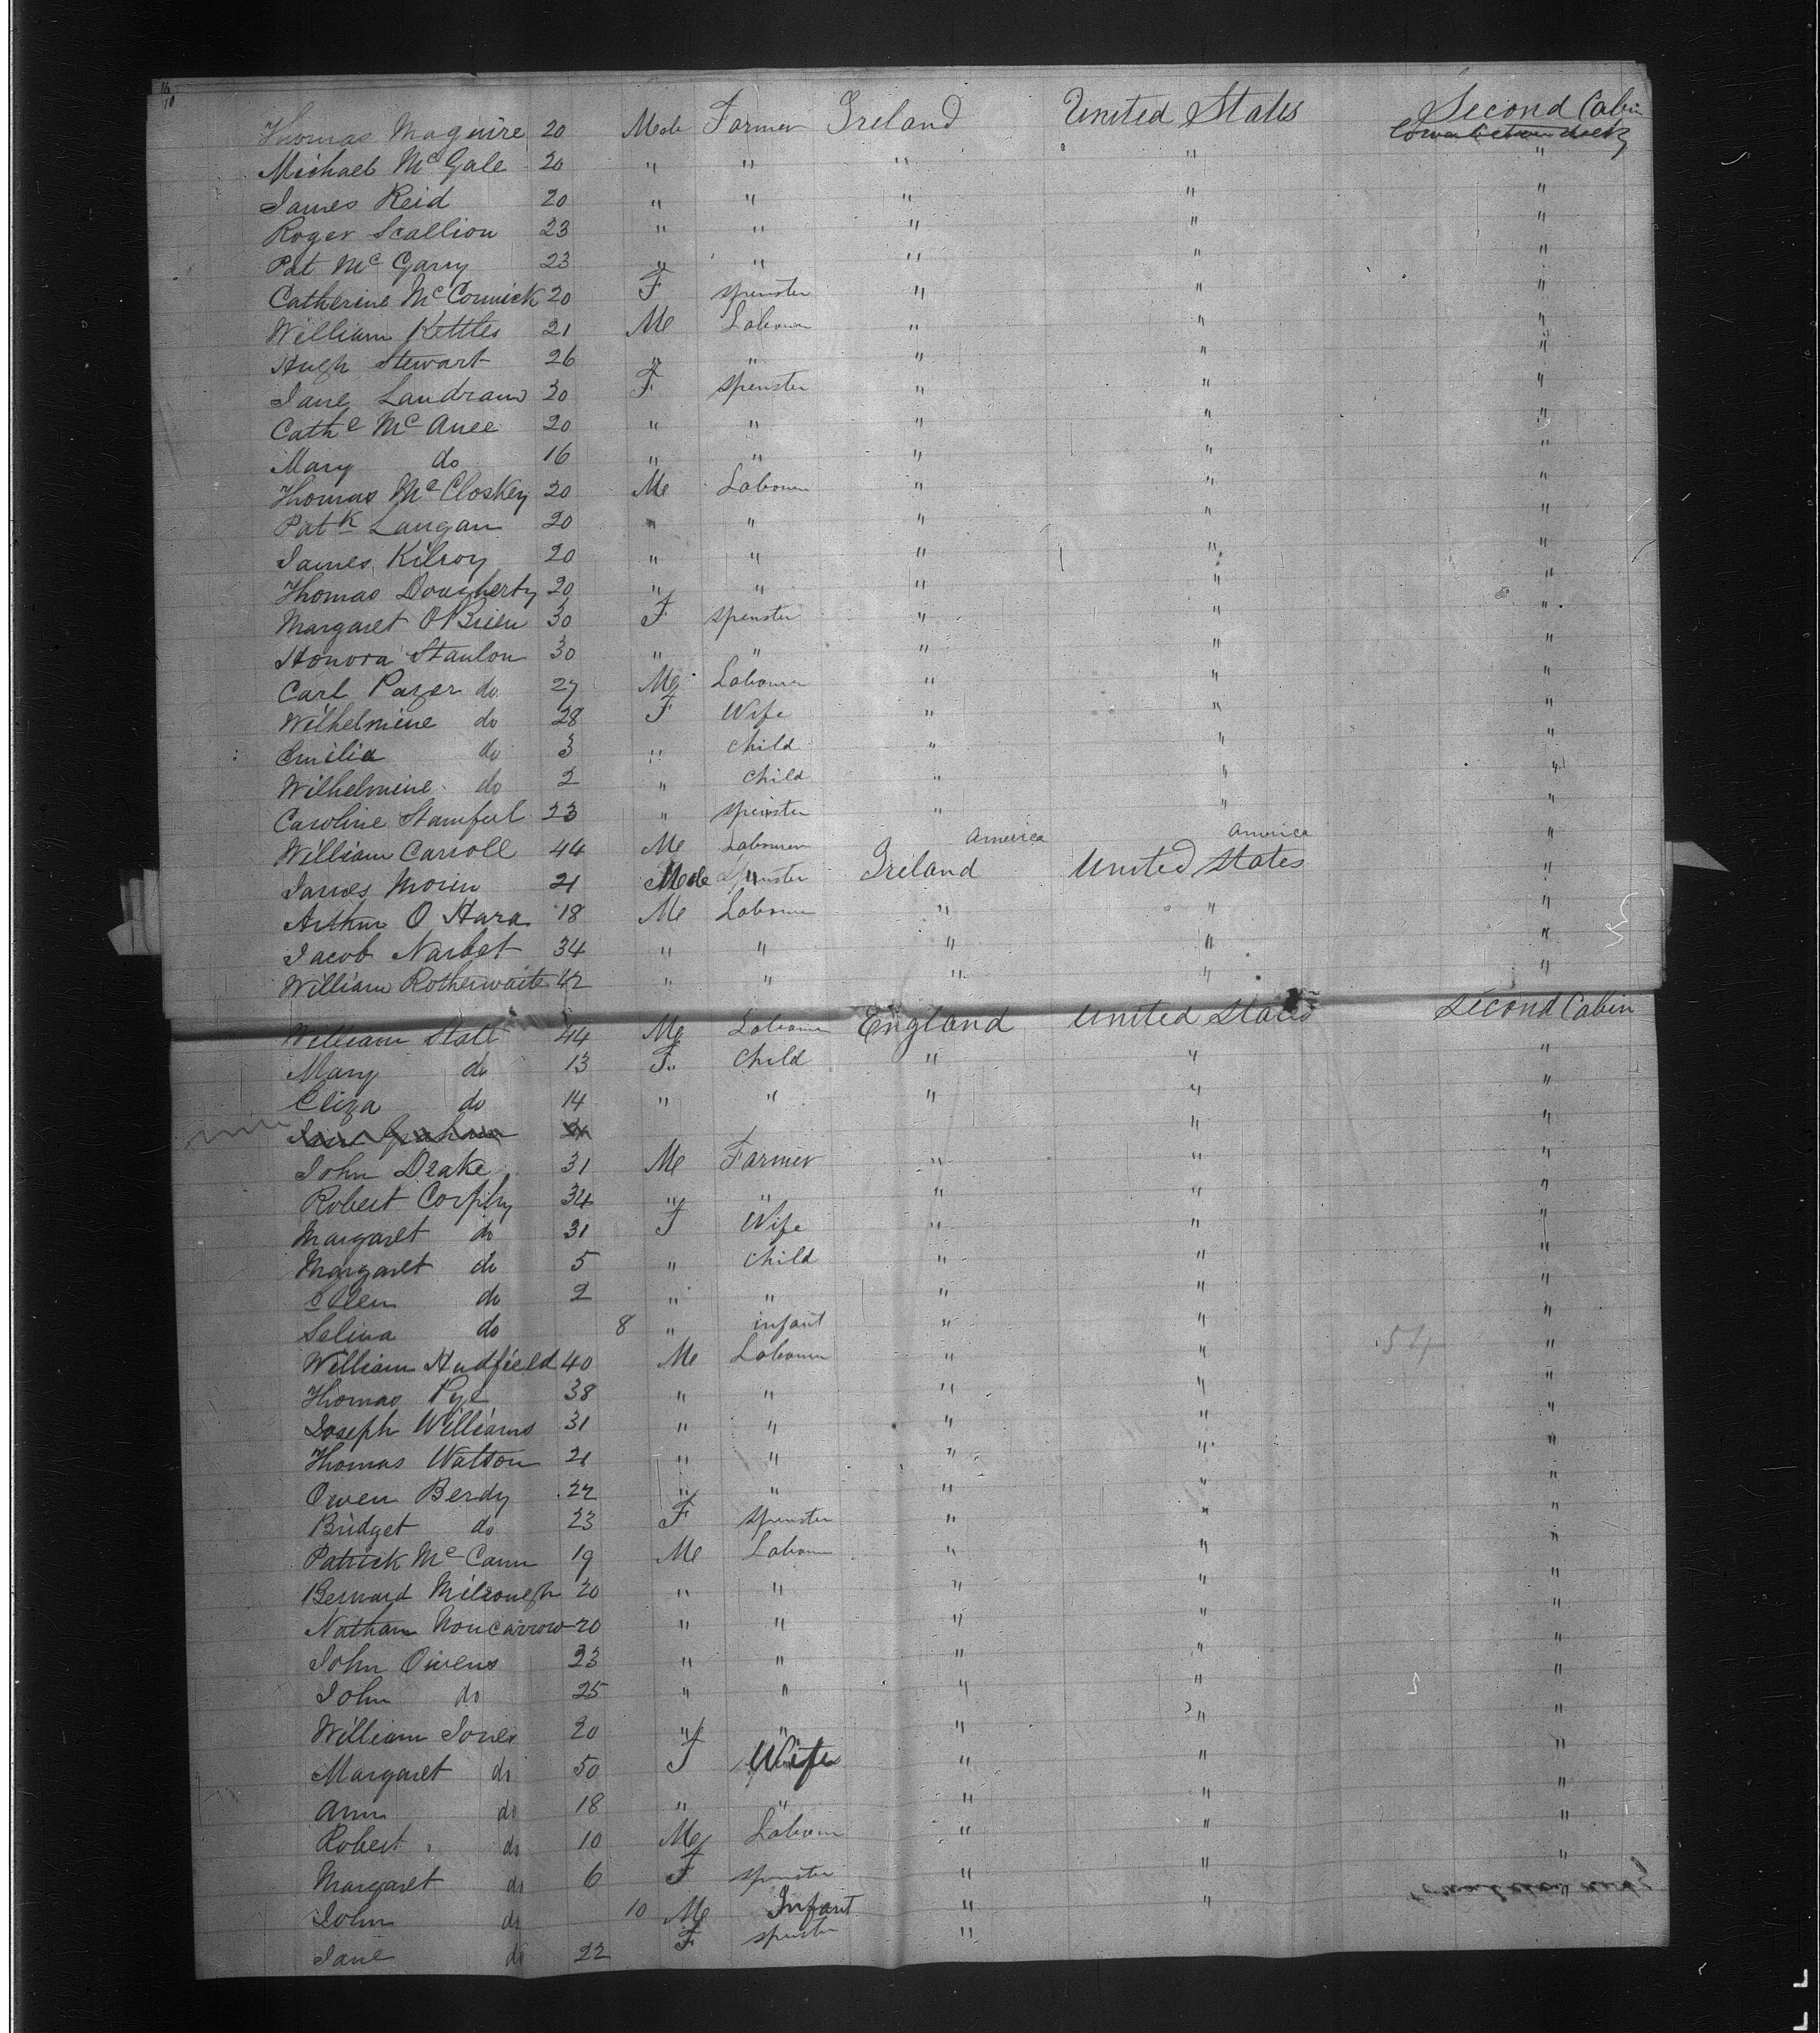 16
10
Thomas Maguire 20 Male Farmer Ireland United States Second Cabin
Michael Mc Gale 20 " " " " "
James Reid 20 " " " " "
Roger Scallion 23 " " " " "
Pat Mc Garry 23 " " " " "
Catherine Mc Cormick 20 F Spinster " " "
William Kettles 21 M Labourer " " "
Hugh Stewart 26 " " " " "
Jane Landram 30 F Spinster " " "
Cathe Mc Anee 20 " " " " "
Mary do 16 " " " " "
Thomas Mc Closkey 20 M Labourer " " "
Patk Langan 20 " " " " "
James Kilroy 20 " " " " "
Thomas Dougherty 20 " " " " "
Margaret O'Brien 30 F Spinster " " "
Honora Stanlon 30 " " " " "
Carl Pazer do 27 M Labourer " " "
Wilhelmine do 28 F Wife " " "
Emilia do 3 " Child " " "
Wilhelmine do 2 " Child " " "
Caroline 23 " Spinster " " "
William Carroll 44 M Labourer America America "
James Morin 21 Male " Ireland United States "
Arthur O Hara 18 M Labourer " " "
Jacob Narbet 34 " " " " "
William Rotherwaite 42 " " " " "
William Statt 44 M Labourer England United States Second Cabin
Mary do 13 F Child " " "
Eliza do 14 " " " " "
" "
John Drake 31 M Farmer " " "
Robert Corphy 34 " " " " "
Margaret do 31 F Wife " " "
Margaret do 5 " Child " " "
Ellen do 2 " " " " "
Selina do 8 " infant " " "
William Hudfield 40 M Labourer " " 54 "
Thomas Pye 38 " " " " "
Joseph Williams 31 " " " " "
Thomas Watson 21 " " " " "
Owen Berdy 22 " " " " "
Bridget do 23 F Spinster " " "
Patrick Mc Cann 19 M Labourer " " "
Bernard 20 " " " " "
Nathan Noncarrow 20 " " " " "
John Owens 23 " " " " "
John do 25 " " " " "
William Jones 20 " " " " "
Margaret do 50 F Wife " " "
Ann do 18 " " " " "
Robert do 10 M Labourer " " "
Margaret do 6 F Spinster " " "
John do 10 M Infant " "
Jane do 22 F Spinster "